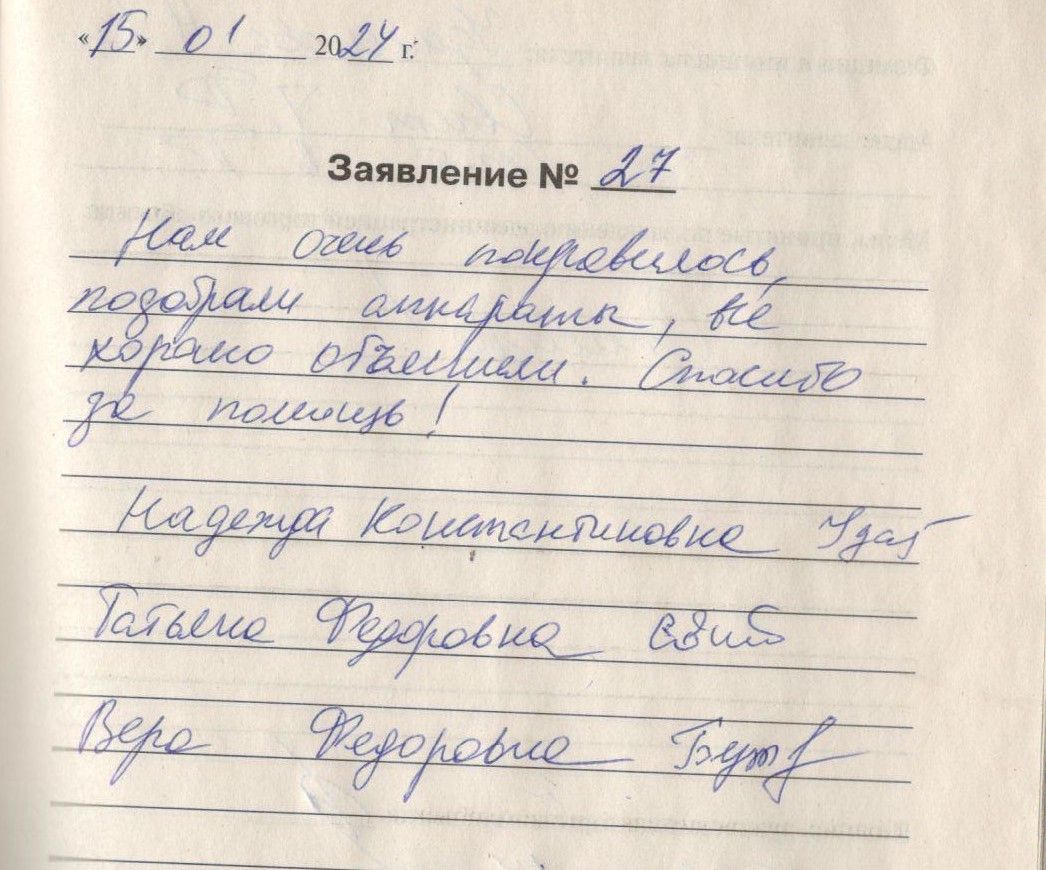 «15» 01 2024 г.
Заявление № 27
Нам очень понравилось,
подобрали аппараты, всё
хорошо объяснили. Спасибо
за помощь!
Надежда Константиновна
Татьяна Федоровна
Вера Федоровна